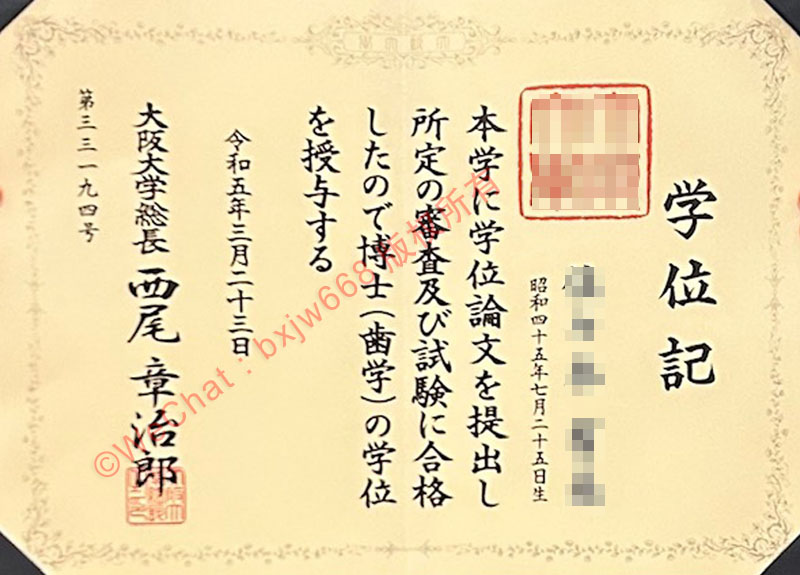 学位記
昭和四十五年七月二十五日生
本学に学位論文を提出し
所定の審査及び試験に合格
したので博士(歯学)の学位
を授与する
令和五年三月二十三日
大阪大学総長 西尾 章治郎
第三三一九四号
©WeChat：bxjw668 版权所有